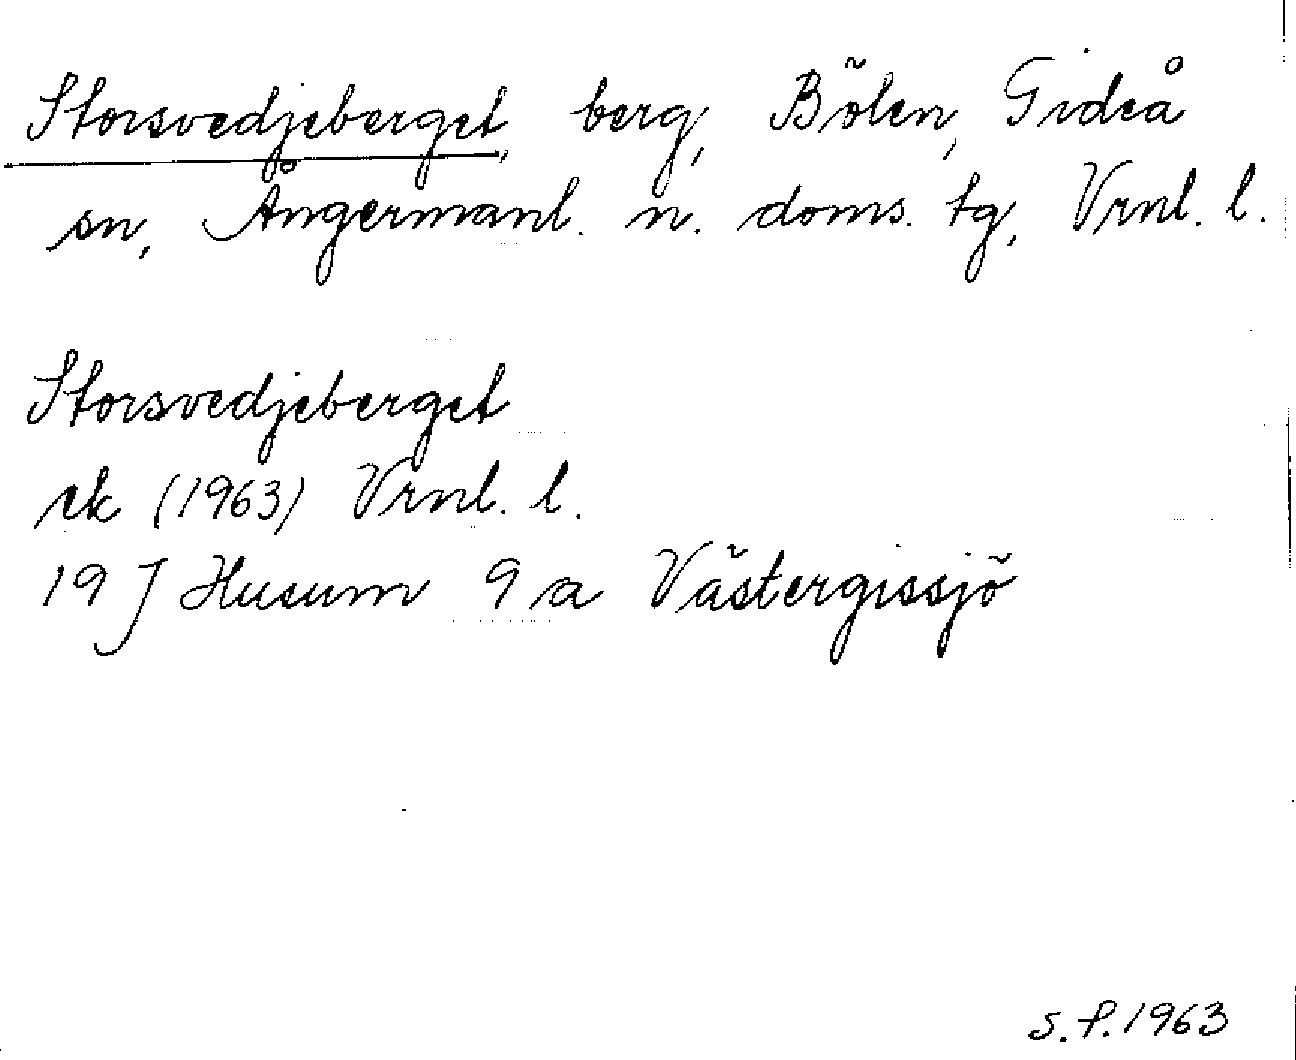 Storsvedjeberget, berg, Bölen, Gideå
sn, Ångermanl. n. doms. tg, Vrnl. l.
Storsvedjeberget
ek (1963) Vrnl. l.
19 J Husum 9 a Västergissjö
S.P. 1963